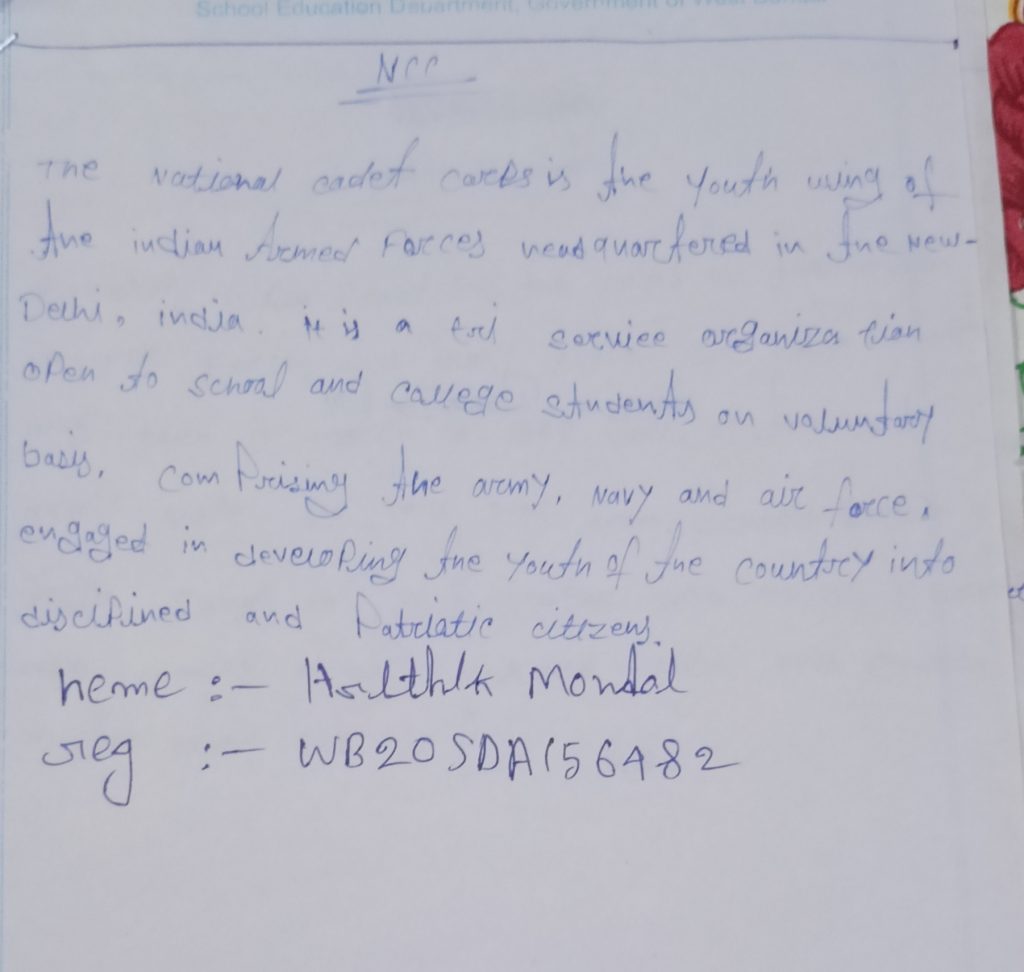 School Education Department, Government of West Bengal
NCC
The National cadet corps is the youth wing of
the indian Armed Forces headquartered in the New-
Delhi, india. it is a tri service organization
open to school and college students on voluntary
basis, comprising the army, Navy and air force,
engaged in developing the youth of the country into
disciplined and Patriatic citizens.
neme :- Mondal
reg :- WB20SDA156482